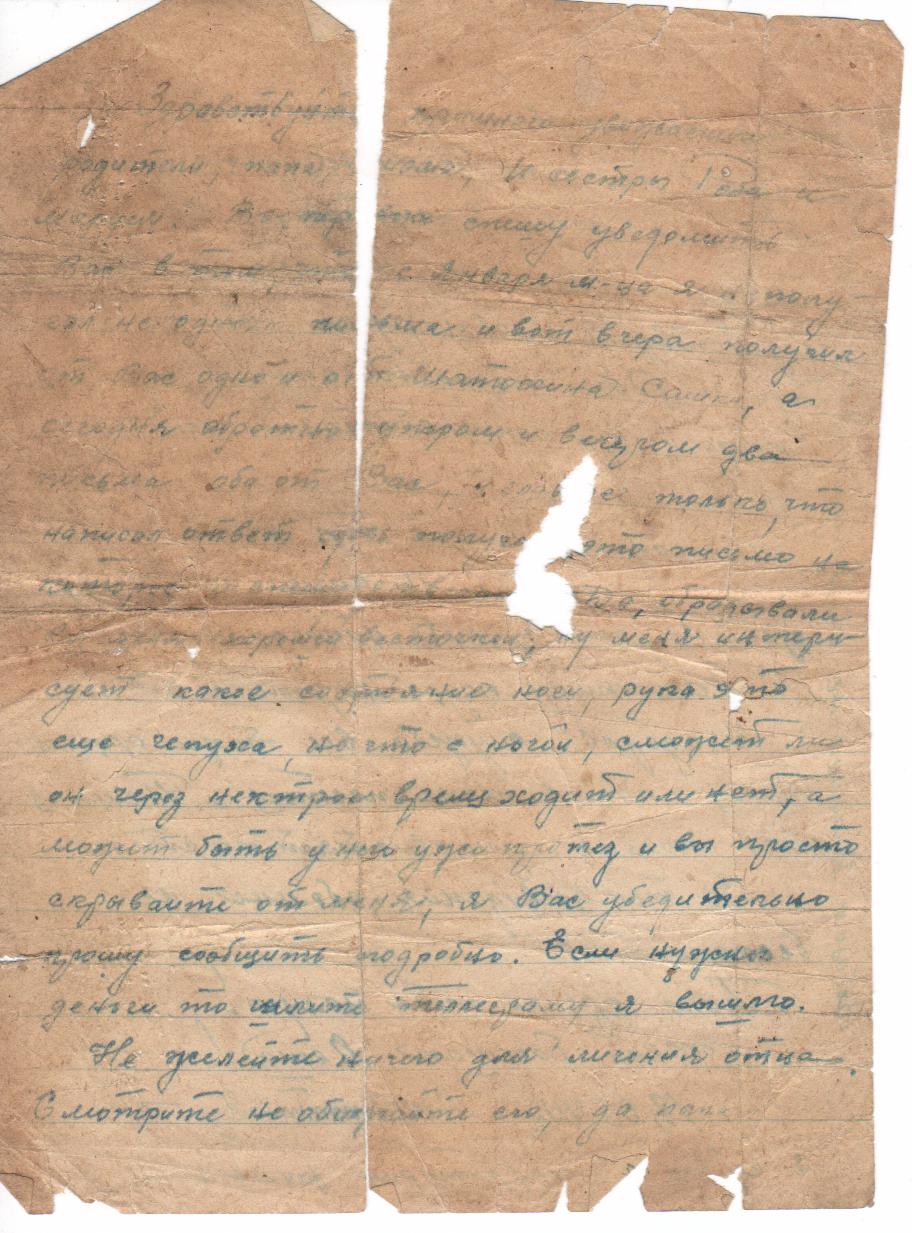 Здравствуйте многоуважаемые
родители, папа и мама, и сестры Тося и
Маруся. Во первых спешу уведомить
Вас в том, что с января м-ца я не полу-
чал не одного письма и вот вчера получил
от Вас одно и от Шатохина Сашки, а
сегодня обратно утором и вечером два
письма оба от Вас, только, что
написал ответ здесь получаю это письмо на
которое
весточкой, ну меня интери-
сует какое состояние ноги, рука это
еще чепуха, но что с ногой, сможет ли
он через нектрои время ходит или нет, а
может быть у него уже протез и вы просто
скрываите от меня, я Вас убедительно
прошу сообщить подробно. Если нужны
деньги то шлите телеграму я вышлю.
Не жалейте ничего для личения отца.
Смотрите не обижайте его, да папа